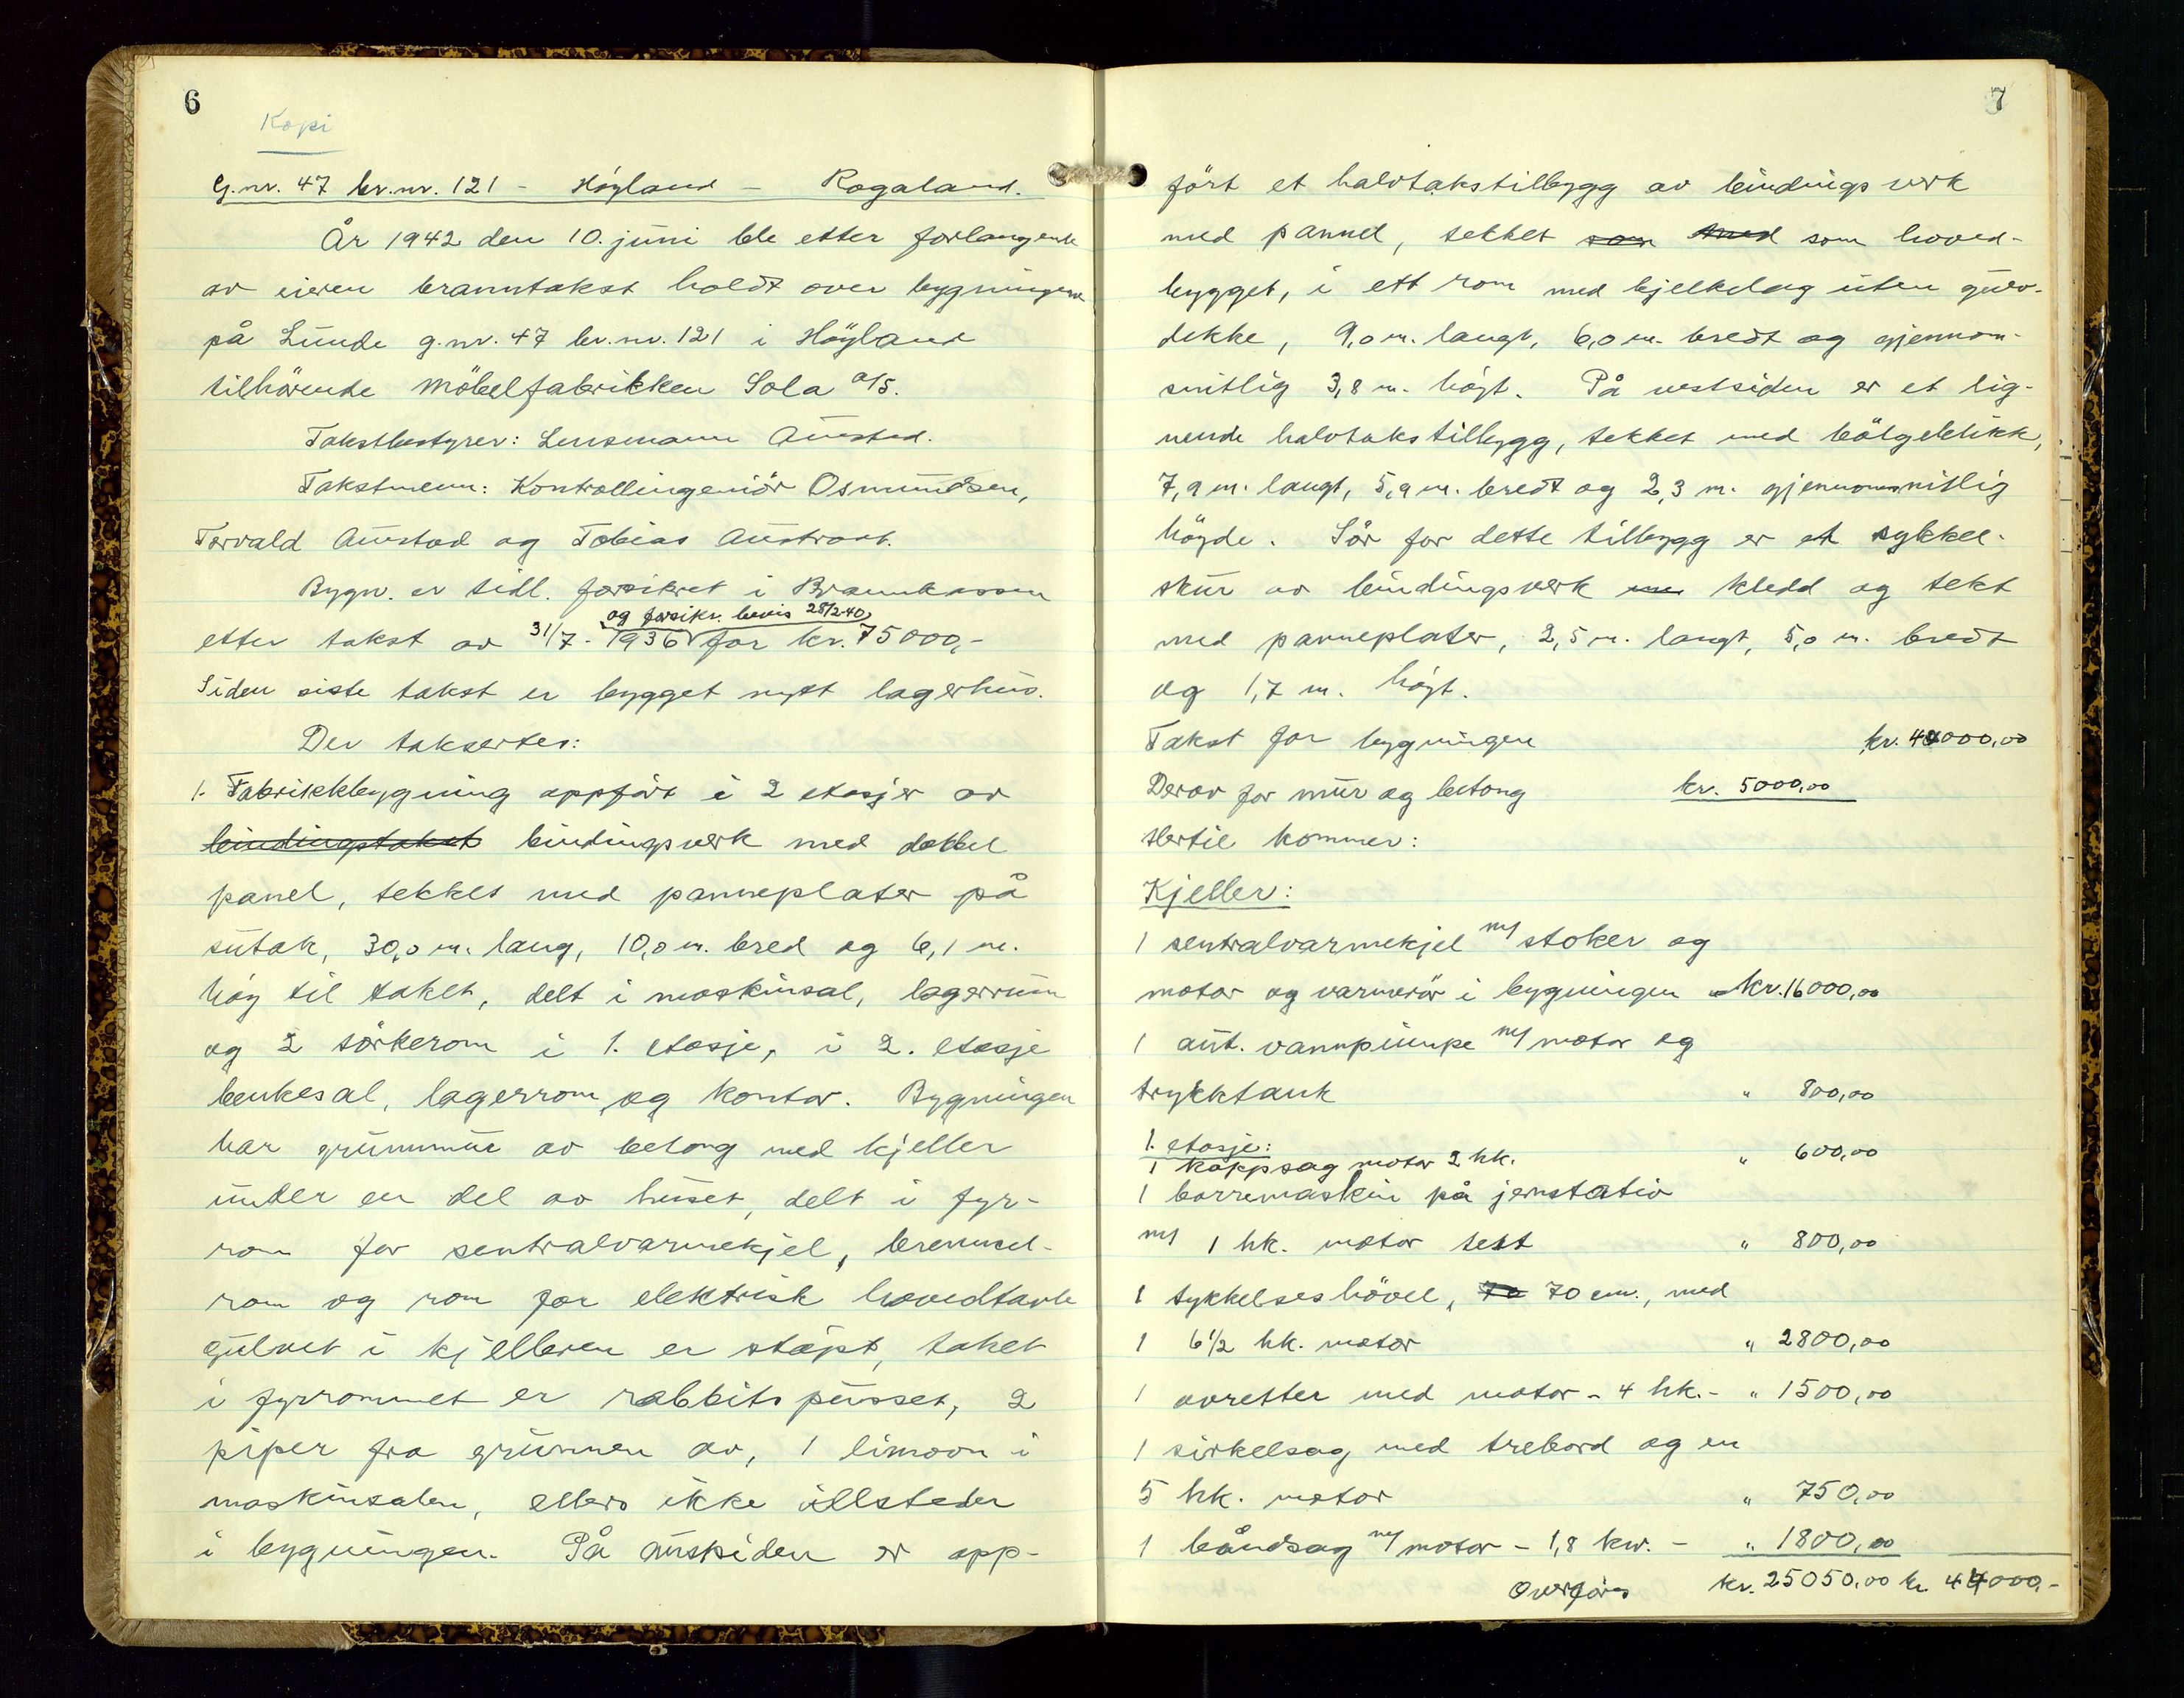 6
Kopi
G.nr. 47 br.nr. 121 - Høyland - Rogaland.
År 1942 den 10. juni ble etter forlangende
av eieren branntakst holdt over bygningene
på Lunde g.nr. 47 br.nr. 121 i Høyland
tilhörende Möbelfabrikken Sola a/s.
Takstbestyrer: Lensmann Austad.
Takstmenn: Kontrollingeniör Osmundsen,
Torvald Austad og Tobias Austraat.
Bygn. er tidl. forsikret i Brannkassen
og forsikr. bevis 28/2-40
etter takst av 31/7-1936 for kr. 75000,-
Siden siste takst er bygget nytt lagerhus.
Der takseres:
1. Fabrikkbygning oppført i 2 etasjer av
bindingstaket bindingsverk med dobbel
panel, tekket med panneplater på
sutak, 30,0 m. lang, 10,0 m. bred og 6,1 m.
høy til taket, delt i maskinsal, lagerrum
og 2 törkerom i 1. etasje, i 2. etasje
benkesal, lagerrom og kontor. Bygningen
har grunnmur av betong med kjeller
under en del av huset, delt i fyr-
rom for sentralvarmekjel, brennsel-
rom og rom for elektrisk hovedtavle
gulvet i kjelleren er støpt, taket
i fyrrommet er rabbitspusset, 2
piper fra grunnen av, 1 limovn i
maskinsalen, ellers ikke illsteder
i bygningen. På austsiden er opp-
7
fört et halvtakstilbygg av bindingsverk
med pannel, tekket som med som hoved-
bygget, i ett rom med bjelkelag uten gulv-
dekke, 9,0 m. langt, 6,0 m. bredt og gjennom-
snitlig 3,8 m. høgt. På vestsiden er et lig-
nende halvtakstilbygg, tekket med bölgeblikk,
7,9 m. langt, 5,9 m. bredt og 2,3 m. gjennomsnitlig
höyde. Sör for dette tilbygg er et sykkel-
skur av bindingsverk kledd og tekt
med panneplater, 2,5 m. langt, 5,0 m. bredt
og 1,7 m. høgt.
Takst for bygningen kr. 44000,00
Derav for mur og betong kr. 5000,00
Hertil kommer:
Kjeller:
1 sentralvarmekjel m/ stoker og
motor og varmerör i bygningen kr. 16000,00
1 aut. vannpumpe m/ motor og
trykktank " 800,00
1. etasje:
1 kappsag motor 2 hk. " 600,00
1 borremaskin på jernstativ
m/ 1 hk. motor tett " 800,00
1 tykkelseshövel, 70 70 cm., med
1 6 1/2 hk. motor " 2800,00
1 avretter med motor - 4 hk. - " 1500,00
1 sirkelsag med trebord og en
5 hk. motor " 750,00
1 båndsag m/ motor - 1,8 kw. - " 1800,00
Overføres kr. 25050,00 kr. 44000,-